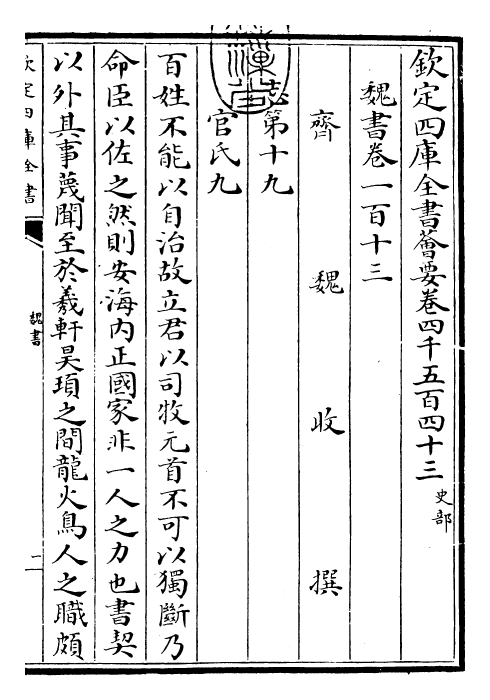 欽定四庫全書薈要卷四千五百四十三 史部
魏書卷一百十三
齊 魏 收 撰
志第十九
官氏九
百姓不能以自治故立君以司牧元首不可以獨斷乃
命臣以佐之然則安海内正國家非一人之力也書契
以外其事蔑聞至於羲軒昊頊之間龍火鳥人之職頗
欽定四庫全書
魏書